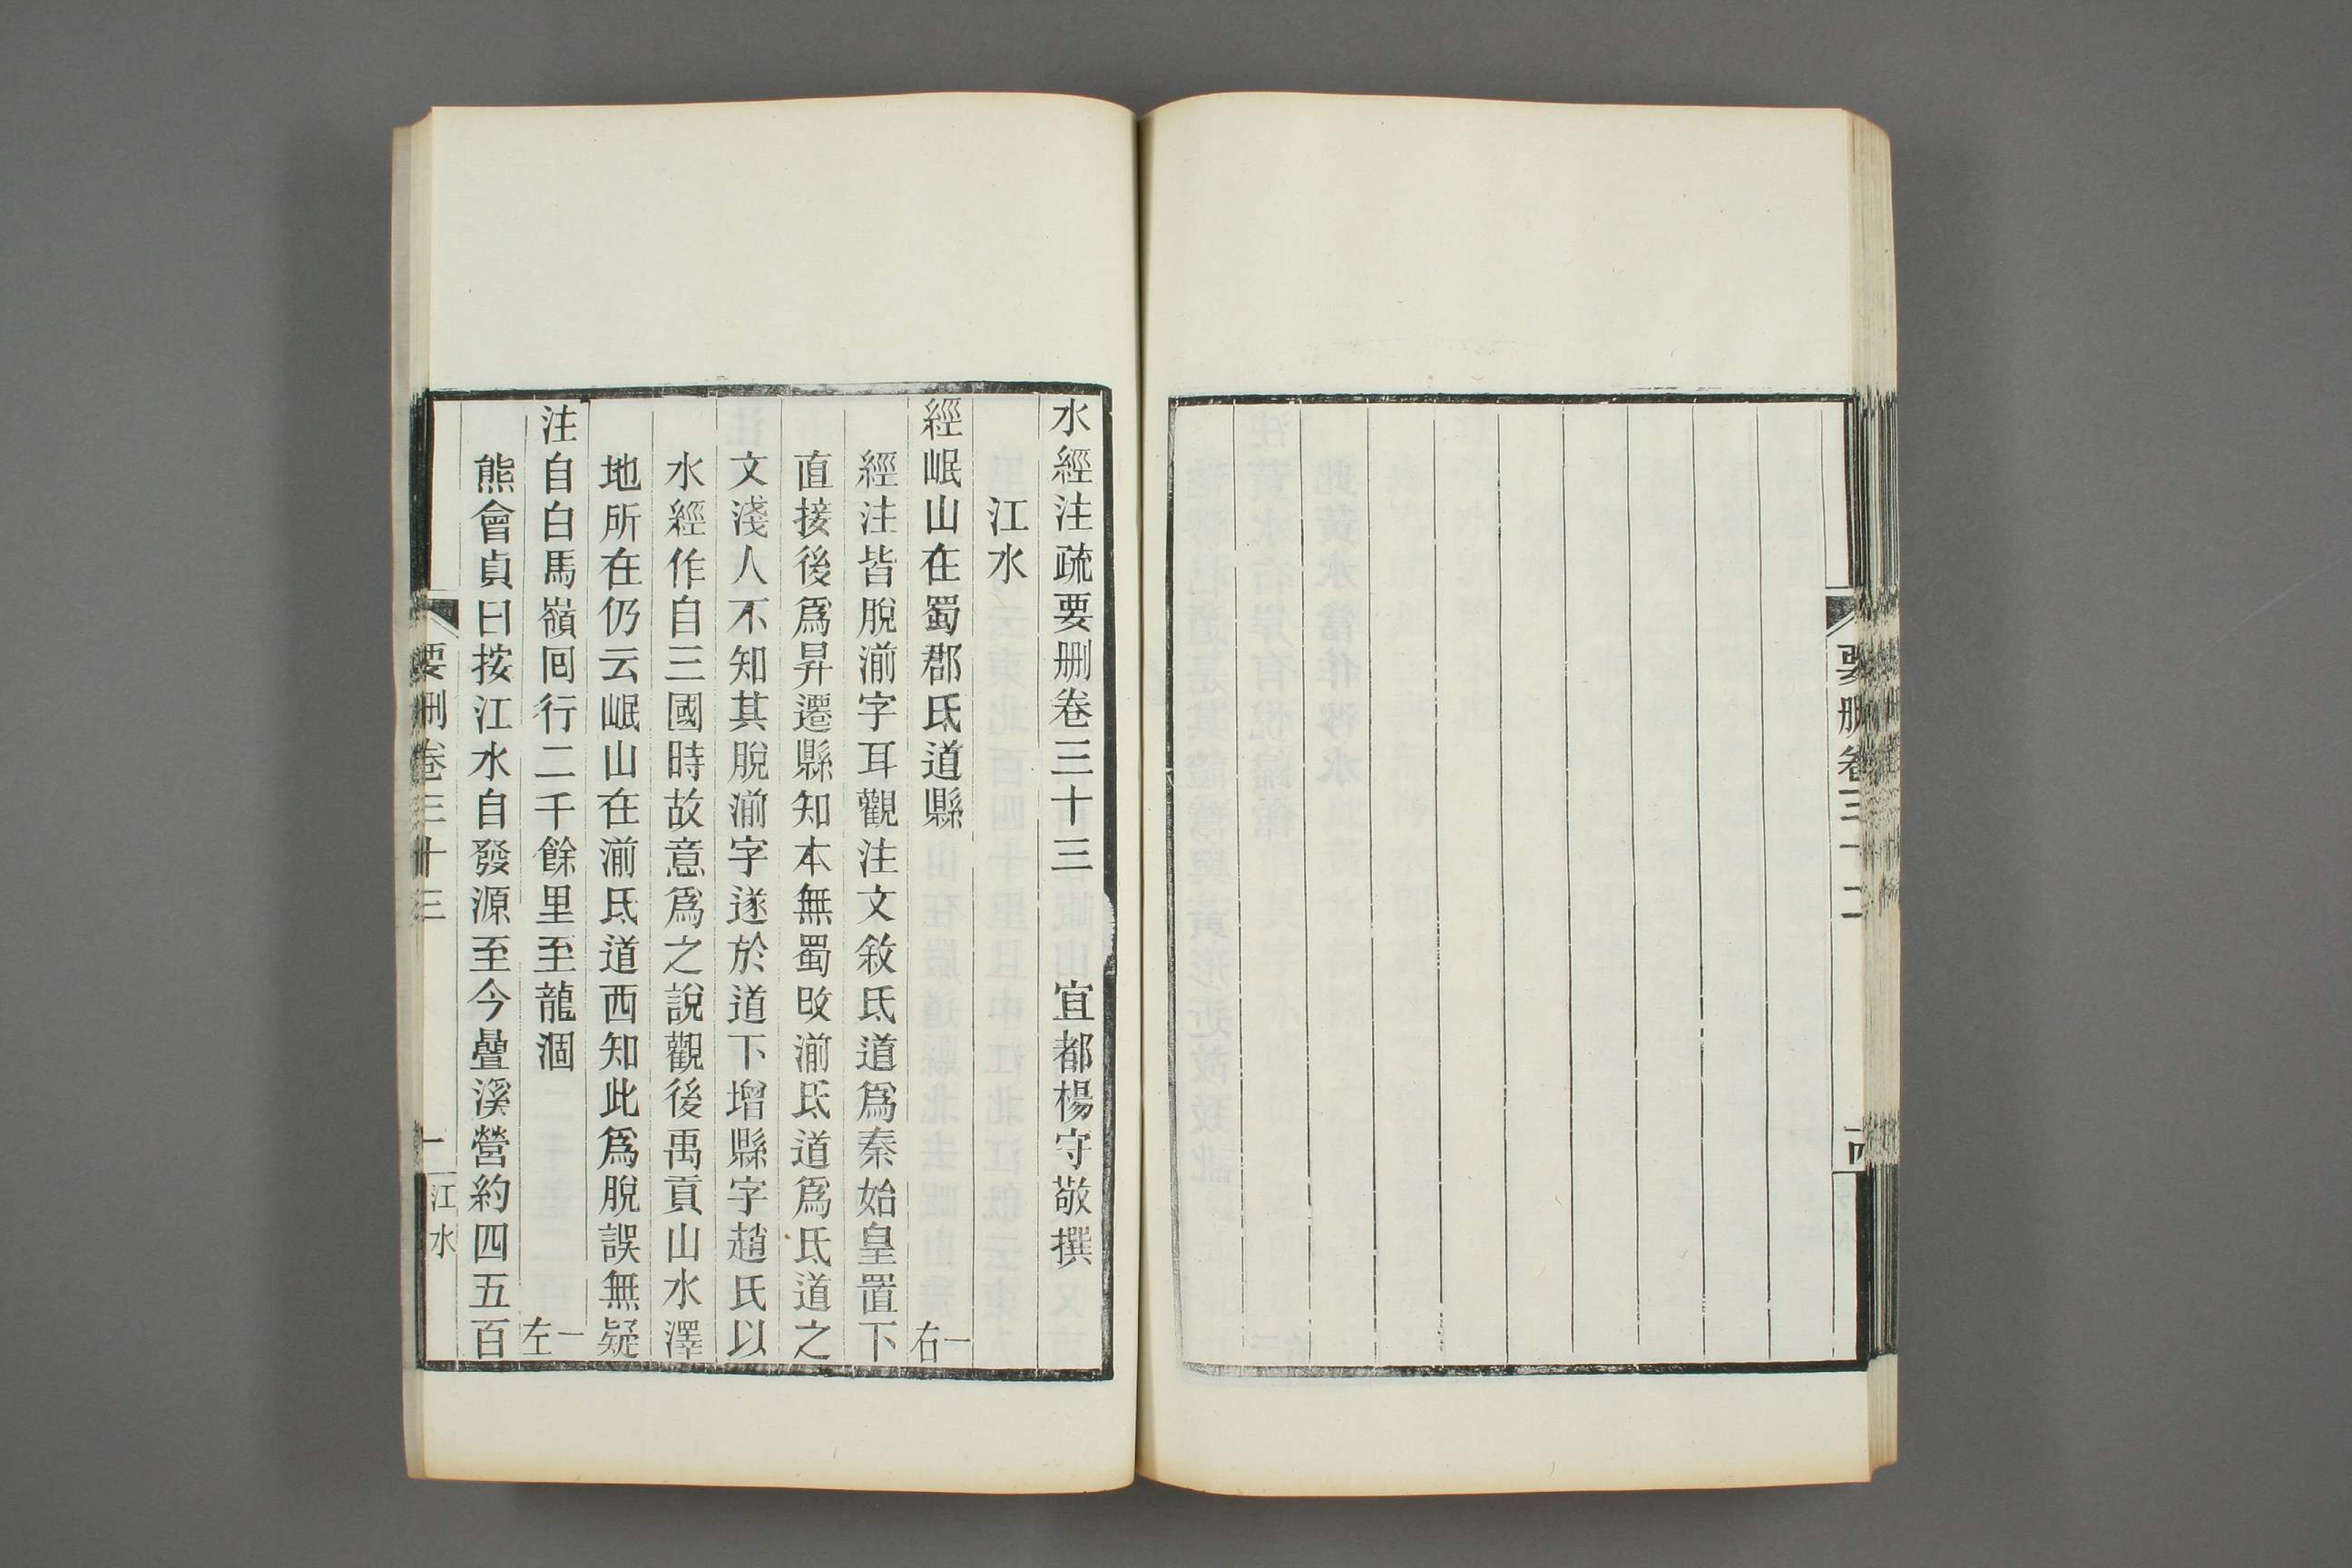 要刪卷三十二
水經注疏要刪卷三十三 宜都楊守敬撰
江水
經岷山在蜀郡氐道縣 一右
經注皆脫湔字耳觀注文敘氐道爲秦始皇置下
直接後爲昇遷縣知本無蜀改湔氐道爲氐道之
文淺人不知其脫湔字遂於道下增縣字趙氏以
水經作自三國時故意爲之說觀後禹貢山水澤
地所在仍云岷山在湔氐道西知此爲脫誤無疑
注自白馬嶺回行二千餘里至龍涸 一左
熊會貞曰按江水自發源至今疊溪營約四五百
要刪卷三十三 一 江水